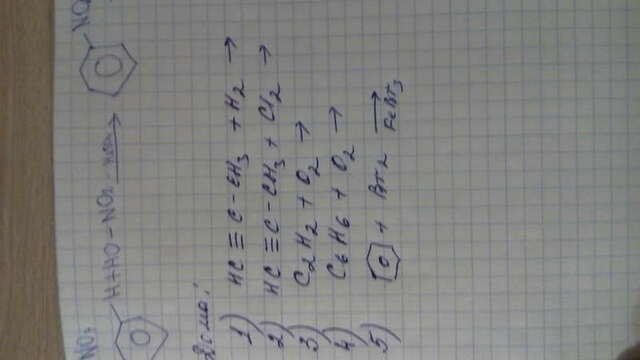 NO₂
H+HO-NO₂ → NO₂
1) HC≡C-CH₃ + H₂ →
2) HC≡C-CH₃ + Cl₂ →
3) C₂H₂ + O₂ →
4) C₆H₆ + O₂ →
5) + Br₂ → FeBr₃